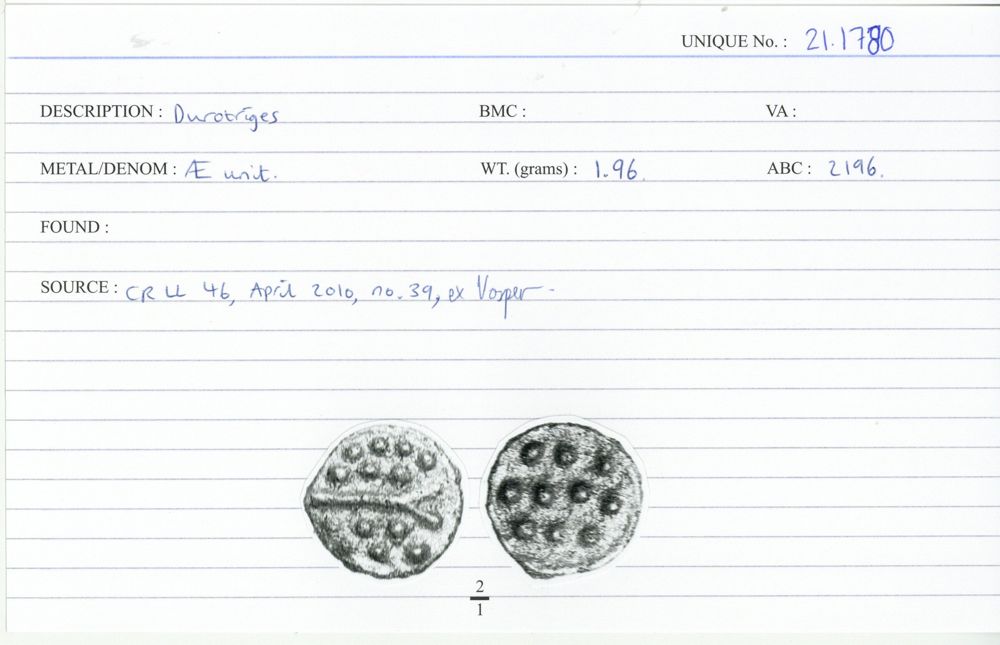 UNIQUE No. : 21.1780
DESCRIPTION : Durotriges BMC : VA :
METAL/DENOM : Æ unit. WT. (grams) : 1.96. ABC : 2196.
FOUND :
SOURCE : CR LL 46, April 2010, no. 39, ex Vosper -
2
1